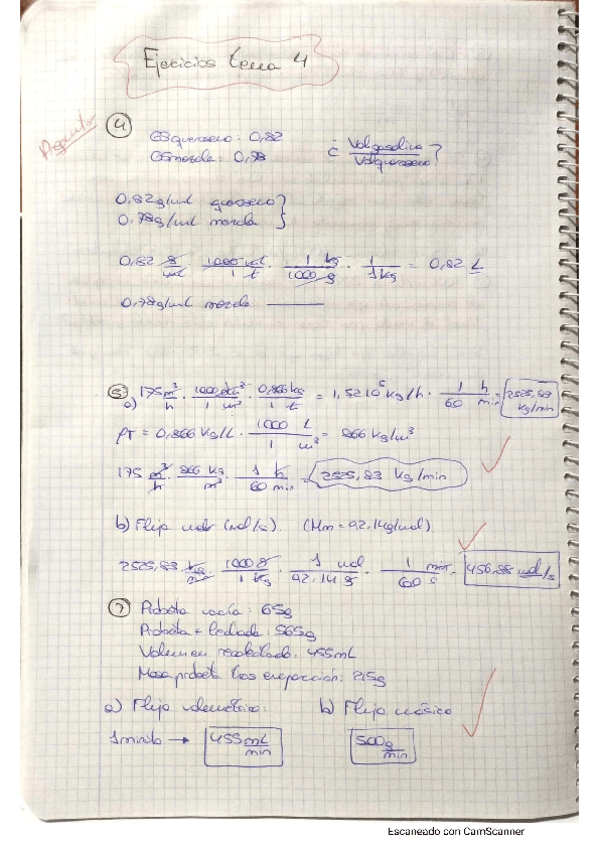 Ejercicios tema 4
4
GE queroseno: 0,82
GE mezcla: 0,78
¿ Vol gasolina / Vol queroseno ?
0,82 g/ml queroseno
0,78 g/ml mezcla
0,82 g/ml · 1000 ml/1 L · 1 kg/1000 g · 1/1 kg = 0,82 L
0,78 g/ml mezcla
5
a) 175 m³/h · 1000 dm³/1 m³ · 0,866 kg/1 L = 1,52 10⁵ kg/h · 1 h/60 min = 2525,83 kg/min
ρT = 0,866 kg/L · 1000 L/1 m³ = 866 kg/m³
175 m³/h · 866 kg/m³ · 1 h/60 min = 2525,83 kg/min
b) Flujo molar (mol/s). (Mm = 92,14 g/mol)
2525,83 kg/min · 1000 g/1 kg · 1 mol/92,14 g · 1 min/60 s = 456,88 mol/s
7 Probeta vacía: 65g
Probeta + lechada: 565g
Volumen recolectado: 455mL
Masa probeta tras evaporación: 215g
a) Flujo volumétrico: b) Flujo másico
1 minuto → 455 mL/min 500 g/min
Escaneado con CamScanner